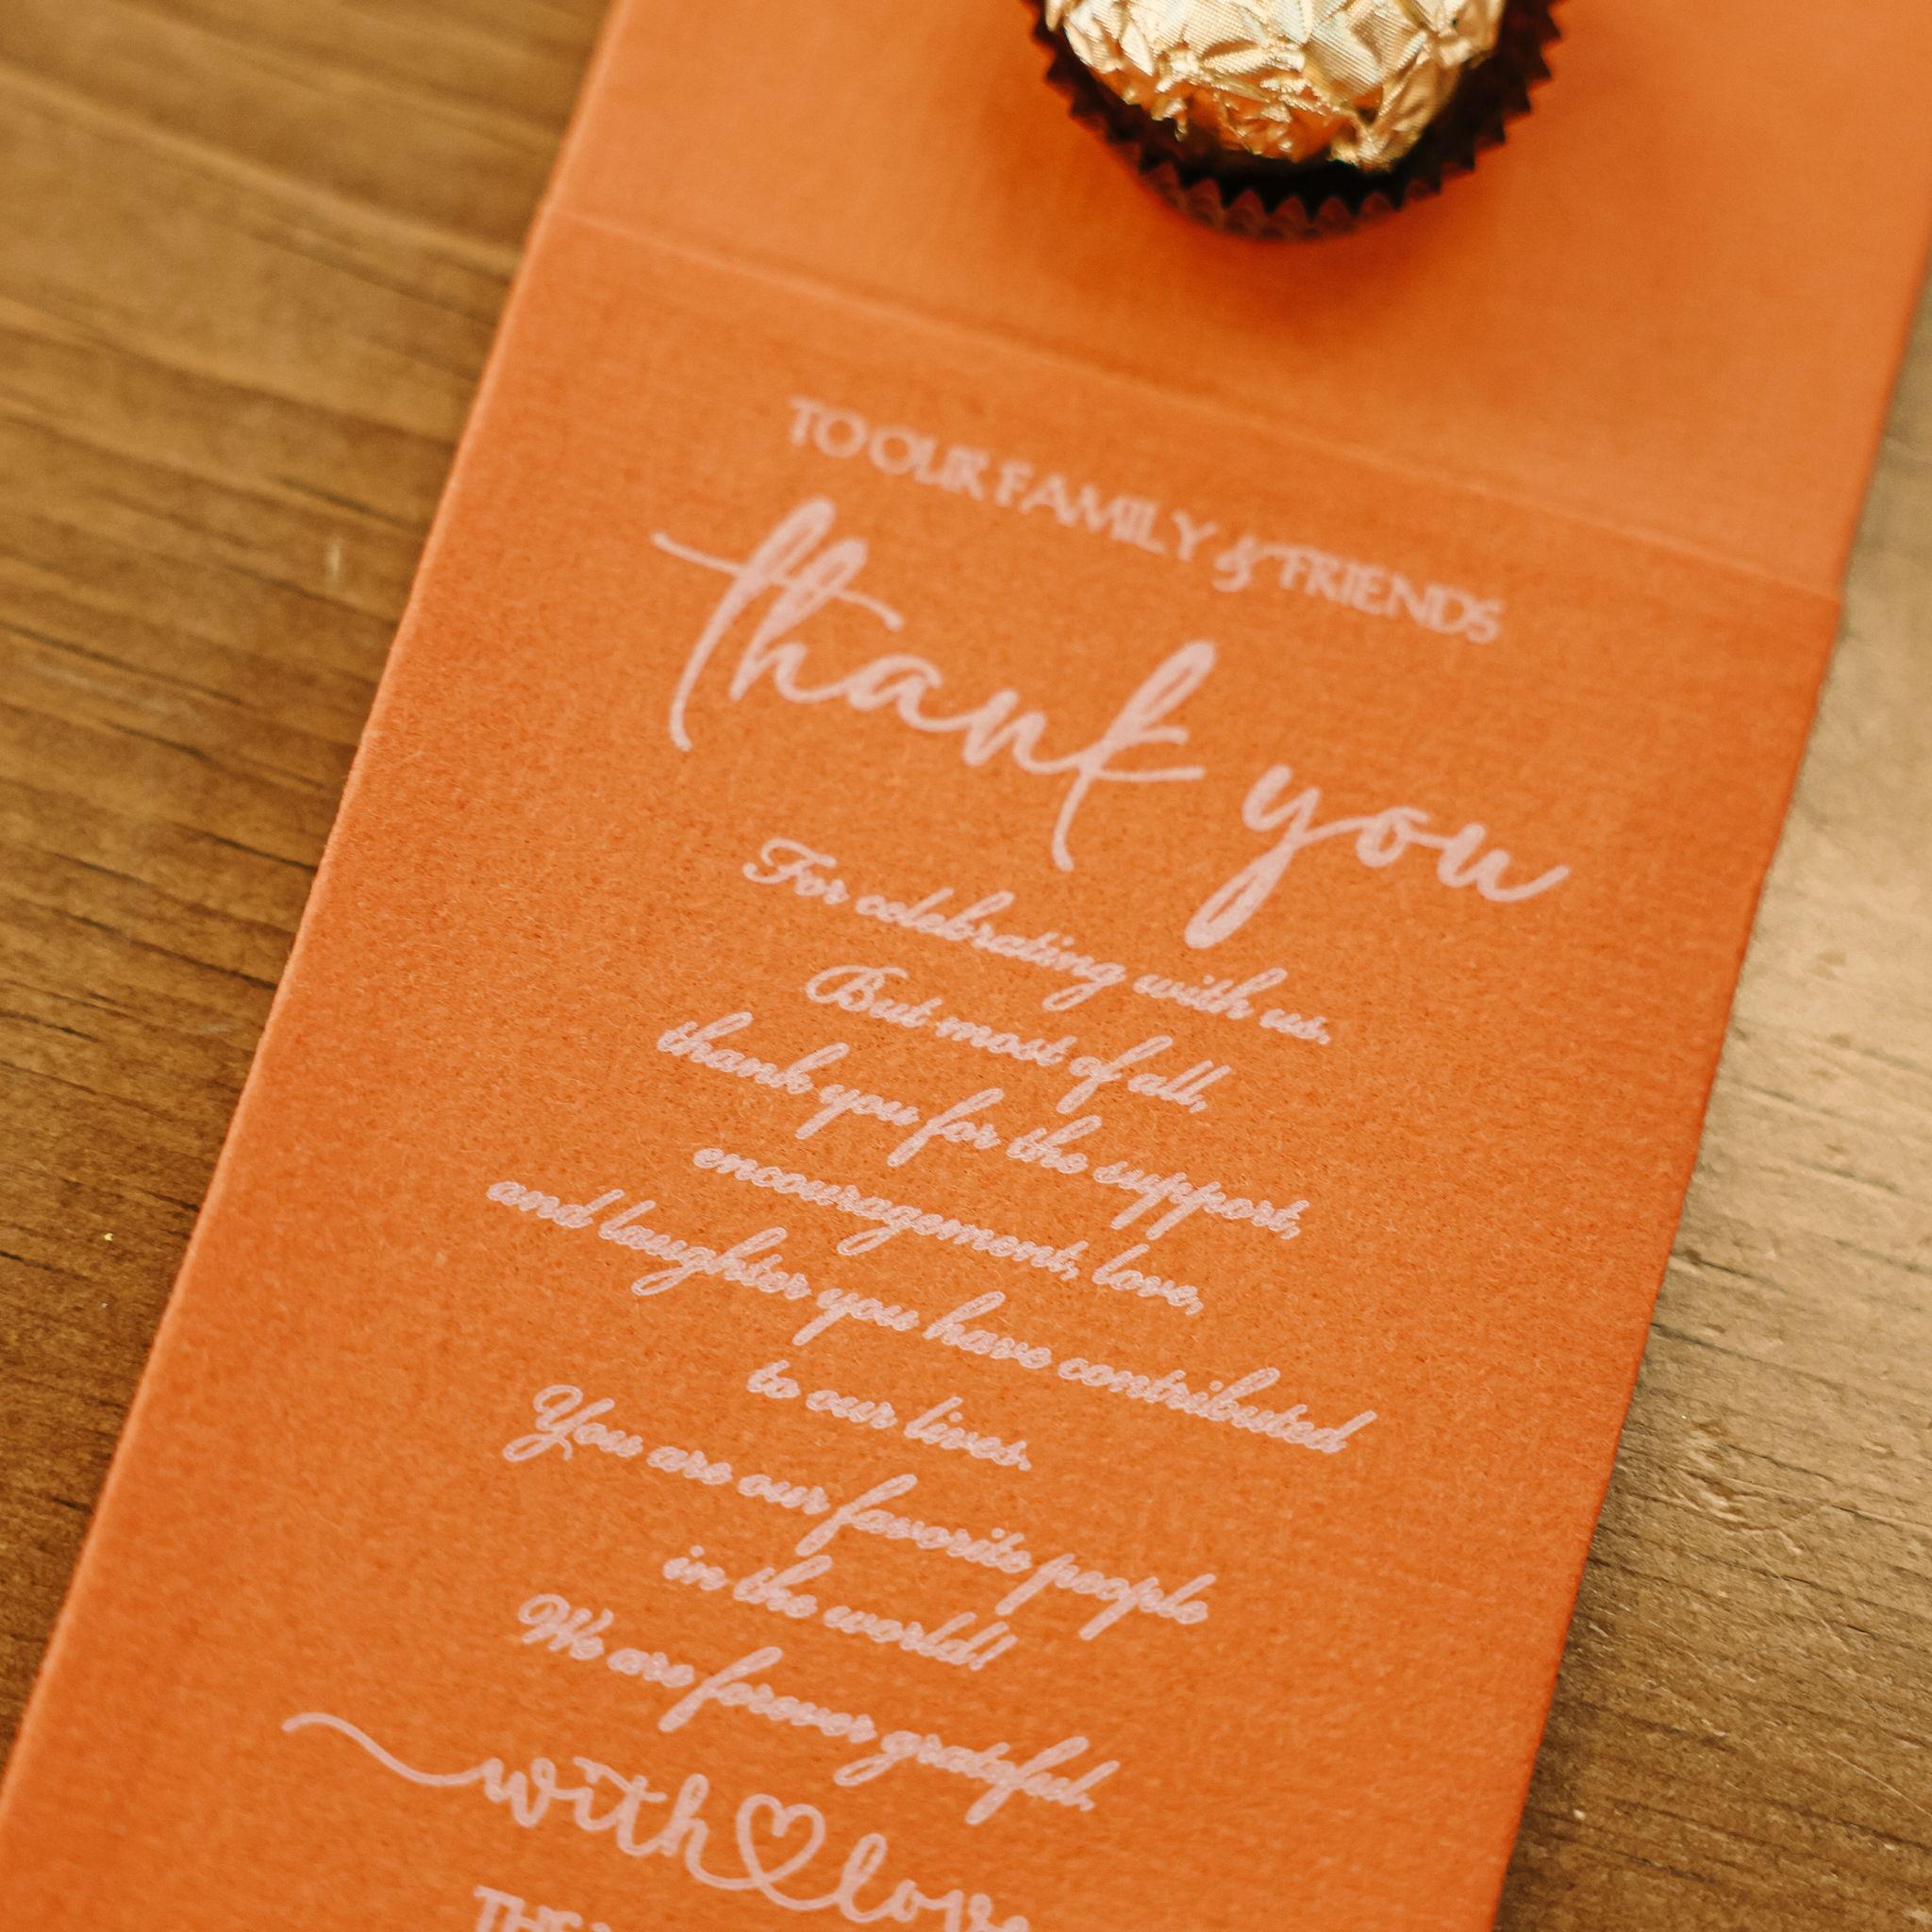 TO OUR FAMILY & FRIENDS
thank you
For celebrating with us.
But most of all,
thank you for the support,
encouragement, love,
and laughter you have contributed
to our lives.
You are our favorite people
in the world!
We are forever grateful,
with love
THE